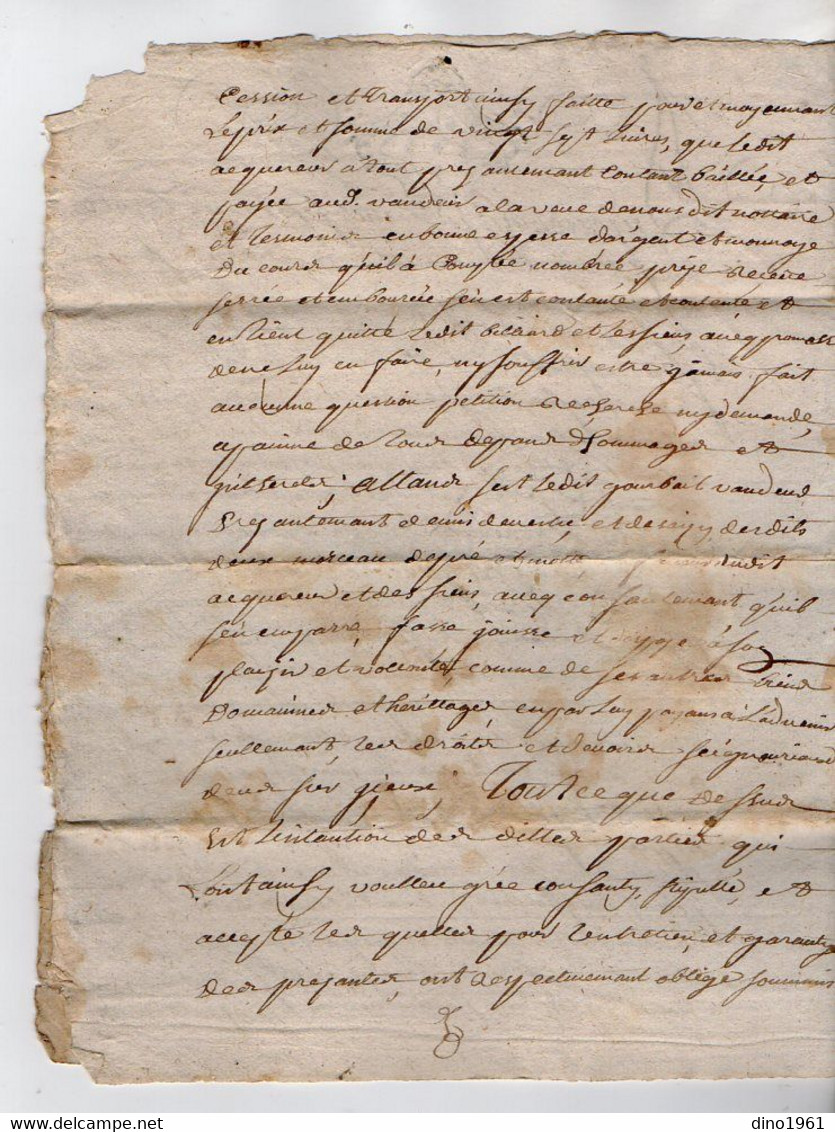 Cession et transport ainsy faitte pour et moyennant
le prix et somme de vingt sept livres, que ledit
acquereur a tout presantemant contant baillée, et
payée aud. vandeur a la veue de nous dit nottaire
et tesmoins en bonne espesse dargent et monnoye
du cours qu'il à comptée nombrée prise receue
serrée et embourcée s'en est contanté et contente et
en tient quitte ledit et les siens aveq promatt
de ne luy en faire, ny souffrir estre jamais fait
aucunne question petition recherche ny demande,
a painne de tous depans dhommages et
; attand s'est ledit vandeur
presantemant demis devestu, et dessaisy desdits
deux morceau de pré et motte, dudit
acquereur et des siens, aveq consantemant qu'il
s'en empare, fasse jouisse et à son
plaisir et vollonté, comme de ses autres biens
domainnes et herittages en par luy payans à l'advenir
seullemant les droits et devoirs seigneuriaux
deus sur jieux; Tout ce que dessus
est l'intantion des dittes parties qui
l'ont ainsy voulleu grée consanty, stipullé, et
accepté les quelles pour l'entretien et garantye
des presantes, ont respectivemant obligé soummis
dino1961